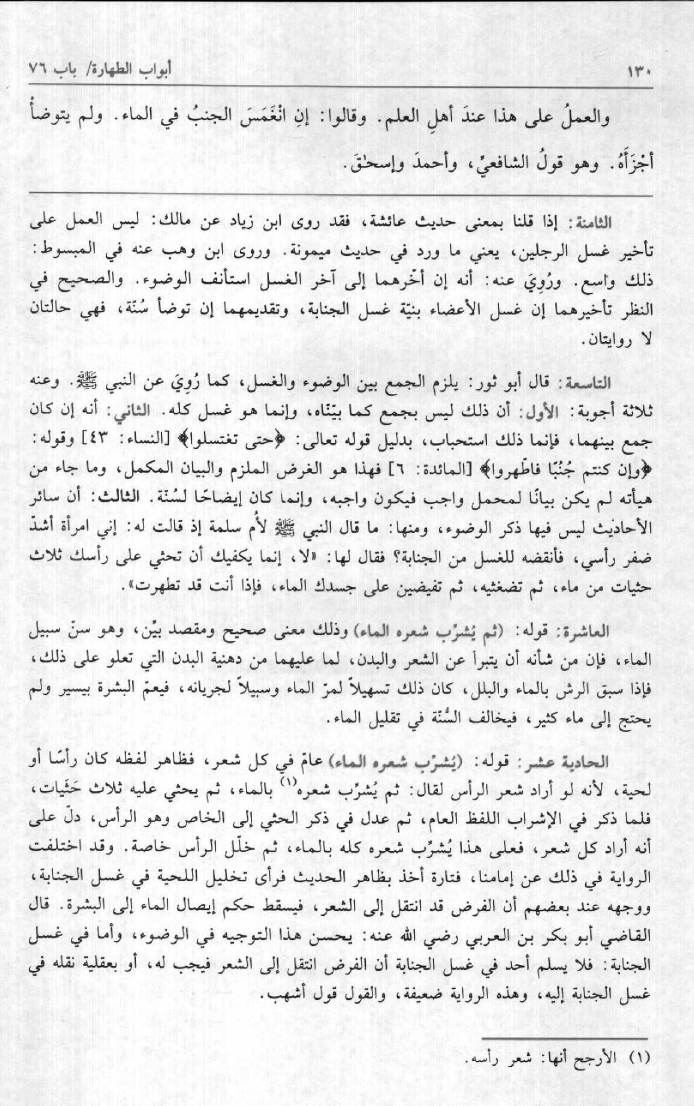 ١٣٠
أبواب الطهارة/ باب ٧٦
والعملُ على هذا عندَ أهلِ العلم. وقالوا: إنِ انْغَمَسَ الجنبُ في الماء. ولم يتوضأْ
أجْزَأَهُ. وهو قولُ الشافعيِّ، وأحمدَ وإسحٰقَ.
الثامنة: إذا قلنا بمعنى حديث عائشة، فقد روى ابن زياد عن مالك: ليس العمل على
تأخير غسل الرجلين، يعني ما ورد في حديث ميمونة. وروى ابن وهب عنه في المبسوط:
ذلك واسع. ورُوِيَ عنه: أنه إن أخّرهما إلى آخر الغسل استأنف الوضوء. والصحيح في
النظر تأخيرهما إن غسل الأعضاء بنيّة غسل الجنابة، وتقديمهما إن توضأ سُنّة، فهي حالتان
لا روايتان.
التاسعة: قال أبو ثور: يلزم الجمع بين الوضوء والغسل، كما رُوِيَ عن النبي ﷺ. وعنه
ثلاثة أجوبة: الأول: أن ذلك ليس بجمع كما بيّنّاه، وإنما هو غسل كله. الثاني: أنه إن كان
جمع بينهما، فإنما ذلك استحباب، بدليل قوله تعالى: ﴿حتى تغتسلوا﴾ [النساء: ٤٣] وقوله:
﴿وإن كنتم جُنُبًا فاطّهروا﴾ [المائدة: ٦] فهذا هو الغرض الملزم والبيان المكمل، وما جاء من
هيأته لم يكن بيانًا لمحمل واجب فيكون واجبه، وإنما كان إيضاحًا لسُنّة. الثالث: أن سائر
الأحاديث ليس فيها ذكر الوضوء، ومنها: ما قال النبي ﷺ لأُم سلمة إذ قالت له: إني امرأة أشدّ
ضفر رأسي، فأنقضه للغسل من الجنابة؟ فقال لها: «لا، إنما يكفيك أن تحثي على رأسك ثلاث
حثيات من ماء، ثم تضغثيه، ثم تفيضين على جسدك الماء، فإذا أنت قد تطهرت».
العاشرة: قوله: (ثم يُشرّب شعره الماء) وذلك معنى صحيح ومقصد بيّن، وهو سنّ سبيل
الماء، فإن من شأنه أن يتبرأ عن الشعر والبدن، لما عليهما من دهنية البدن التي تعلو على ذلك،
فإذا سبق الرش بالماء والبلل، كان ذلك تسهيلاً لمرّ الماء وسبيلاً لجريانه، فيعمّ البشرة بيسير ولم
يحتج إلى ماء كثير، فيخالف السُّنّة في تقليل الماء.
الحادية عشر: قوله: (يُشرّب شعره الماء) عامّ في كل شعر، فظاهر لفظه كان رأسًا أو
لحية، لأنه لو أراد شعر الرأس لقال: ثم يُشرّب شعره(١) بالماء، ثم يحثي عليه ثلاث حَثَيات،
فلما ذكر في الإشراب اللفظ العام، ثم عدل في ذكر الحثي إلى الخاص وهو الرأس، دلّ على
أنه أراد كل شعر، فعلى هذا يُشرّب شعره كله بالماء، ثم خلّل الرأس خاصة. وقد اختلفت
الرواية في ذلك عن إمامنا، فتارة أخذ بظاهر الحديث فرأى تخليل اللحية في غسل الجنابة،
ووجهه عند بعضهم أن الفرض قد انتقل إلى الشعر، فيسقط حكم إيصال الماء إلى البشرة. قال
القاضي أبو بكر بن العربي رضي الله عنه: يحسن هذا التوجيه في الوضوء، وأما في غسل
الجنابة: فلا يسلم أحد في غسل الجنابة أن الفرض انتقل إلى الشعر فيجب له، أو بعقلية نقله في
غسل الجنابة إليه، وهذه الرواية ضعيفة، والقول قول أشهب.
(١) الأرجح أنها: شعر رأسه.